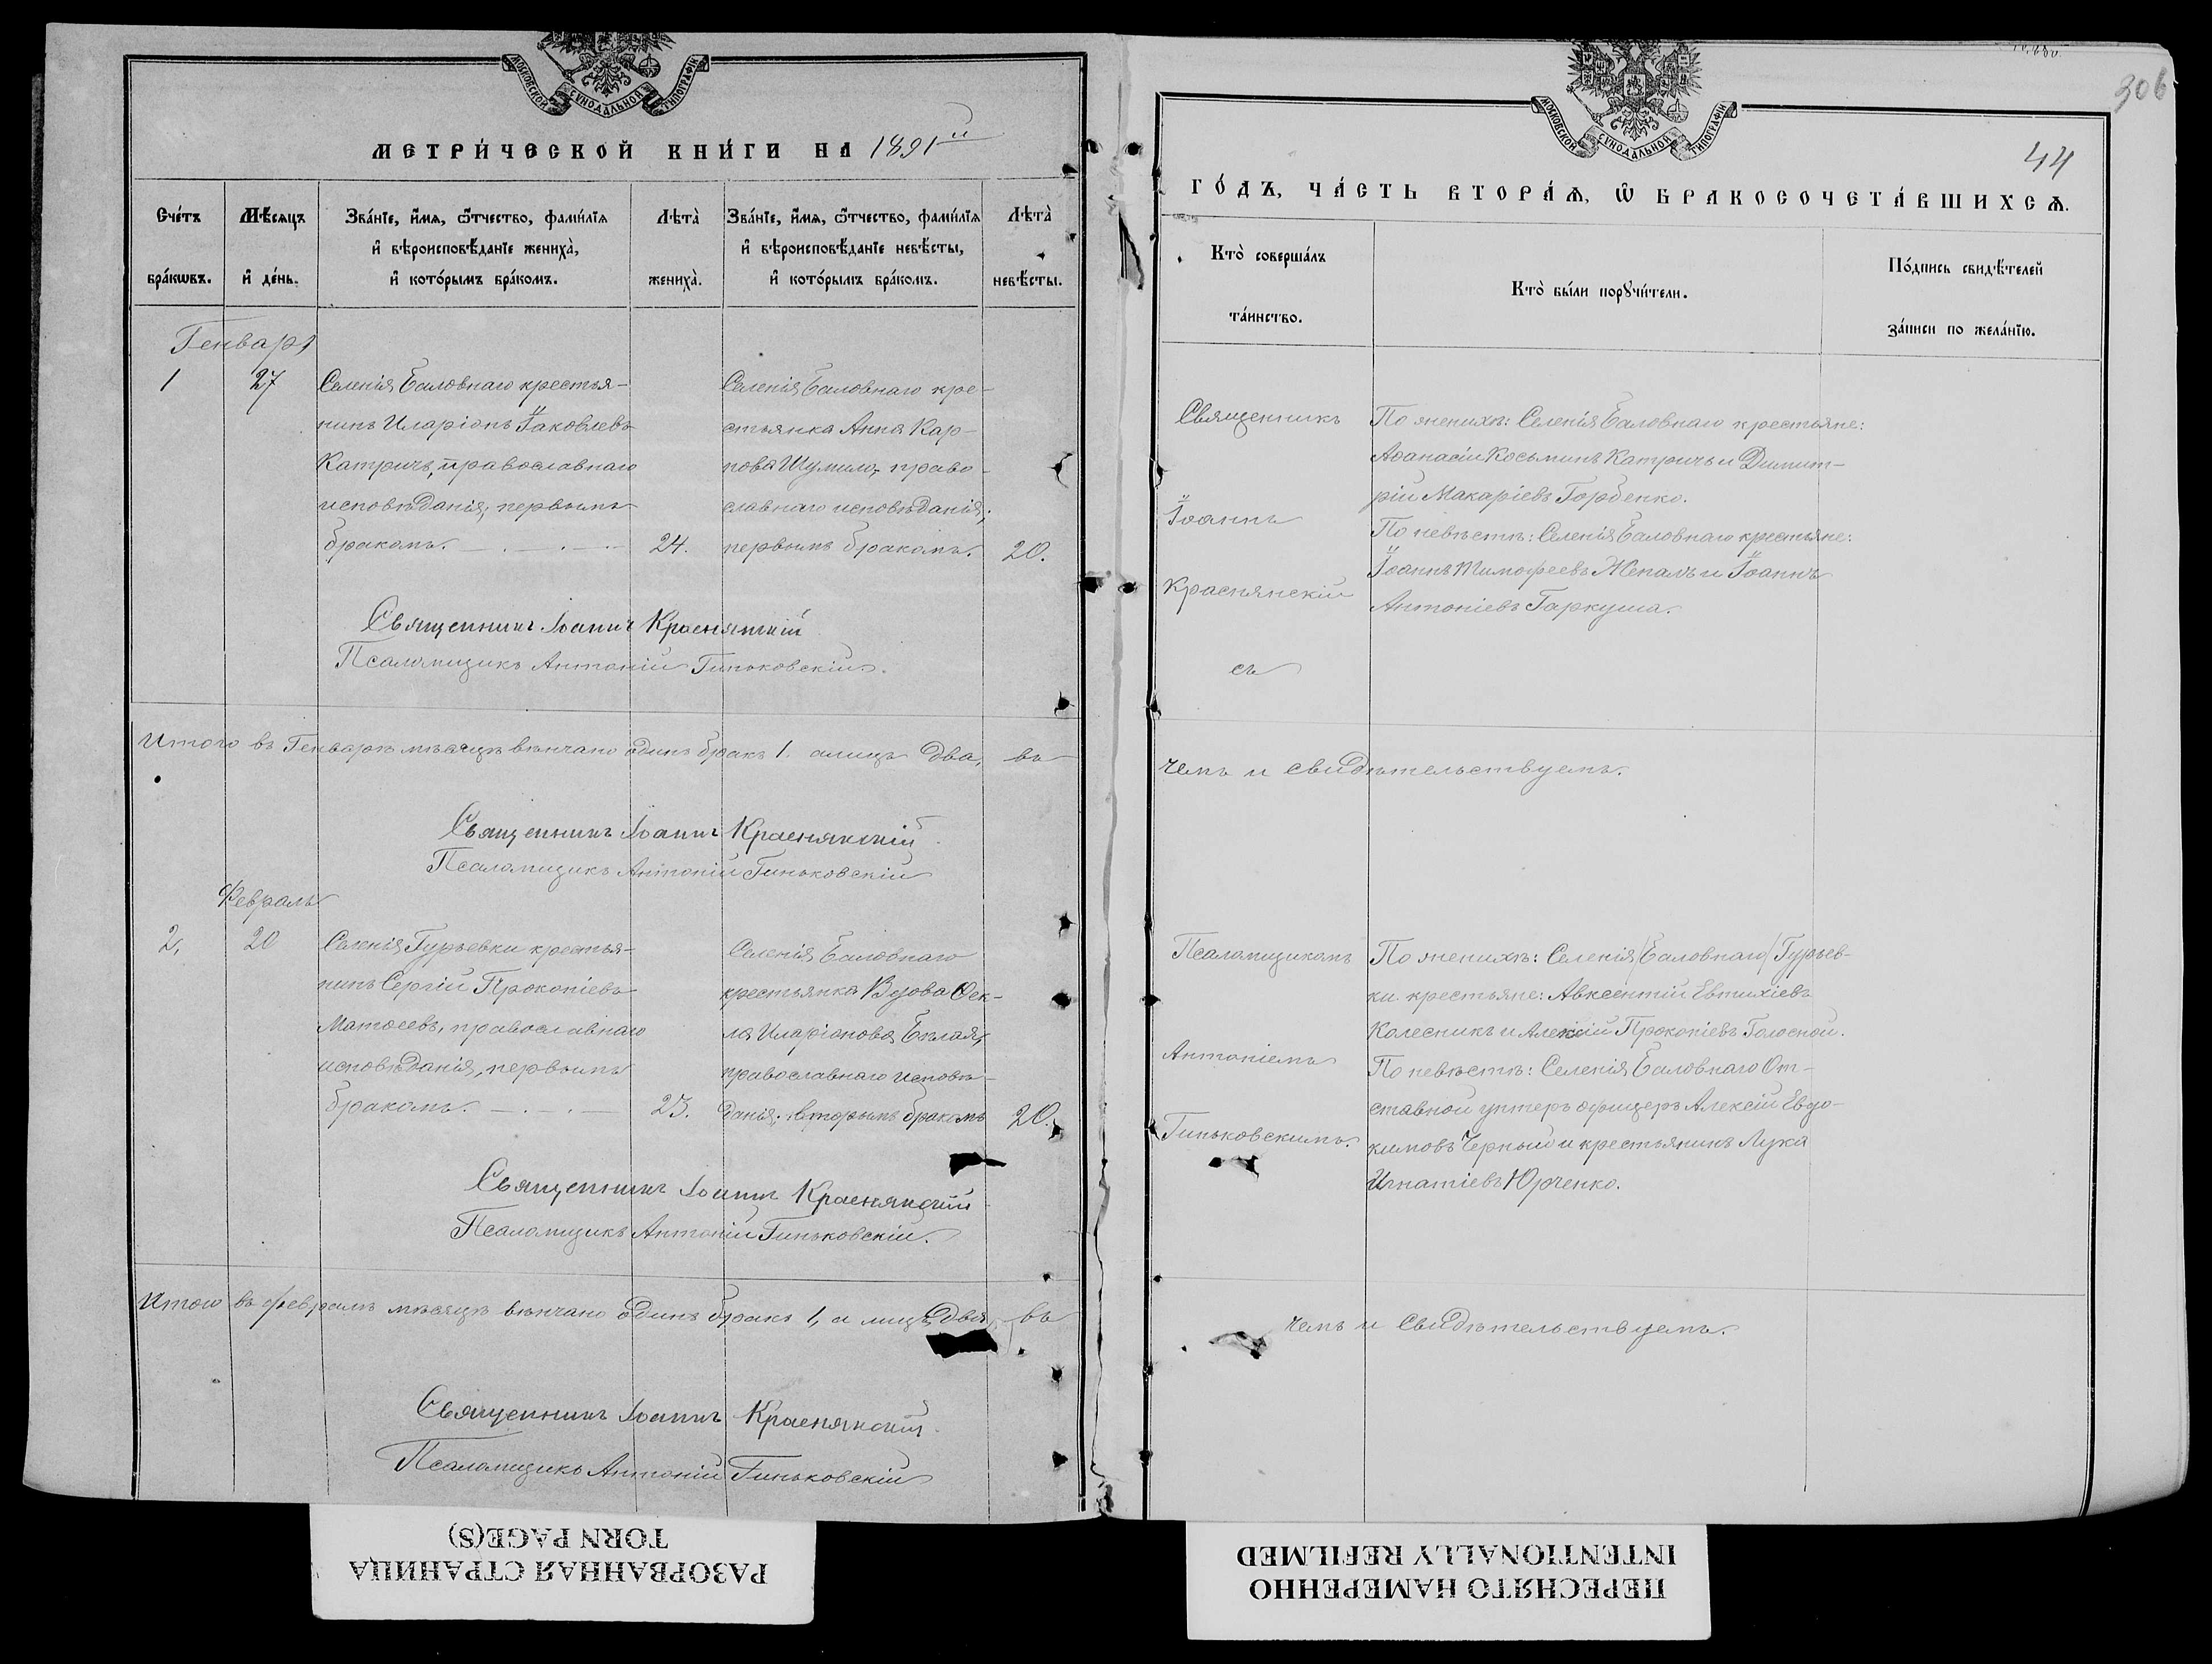 МОСКОВСКОЙ СѴНОДАЛЬНОЙ ТИПОГРАФІИ
МЕТРИ́ЧЕСКОЙ КНИ́ГИ НА 1891й
Сче́тъ бра́кѡвъ.
Мѣ́сяцъ и҆ де́нь.
Зва́нїе, и҆́мѧ, ѻ҆́тчество, фами́лїѧ
и҆ вѣроисповѣ́данїе жениха̀,
и҆ кото́рымъ бра́комъ.
Лѣта̀ жениха̀.
Зва́нїе, и҆́мѧ, ѻ҆́тчество, фами́лїѧ
и҆ вѣроисповѣ́данїе невѣ́сты,
и҆ кото́рымъ бра́комъ.
Лѣта̀ невѣ́сты.
Генварь
1
27
Селенія Баловнаго крестья-
нинъ Иларіонъ Іаковлевъ
Катричъ, православнаго
исповѣданія, первымъ
бракомъ.
24.
Селенія Баловнаго кре-
стьянка Анна Кар-
пова Шумило, право-
славнаго исповѣданія,
первымъ бракомъ.
20.
Священникъ Іоаннъ Краснянскій
Псаломщикъ Антоній Гиньковскій.
Итого въ Генварѣ мѣсяцѣ вѣнчано одинъ бракъ 1. а лицъ два, въ
Священникъ Іоаннъ Краснянскій
Псаломщикъ Антоній Гиньковскій
Февраль
2,
20
Селенія Гурьевки крестья-
нинъ Сергій Прокопіевъ
Матѳеевъ, православнаго
исповѣданія, первымъ
бракомъ.
23.
Селенія Баловнаго
крестьянка Вдова Ѳек-
ла Иларіонова Бѣлая,
православнаго исповѣ-
данія, вторымъ бракомъ
20.
Священникъ Іоаннъ Краснянскій
Псаломщикъ Антоній Гиньковскій.
Итого въ февралѣ мѣсяцѣ вѣнчано одинъ бракъ 1, а лицъ два, въ
Священникъ Іоаннъ Краснянскій
Псаломщикъ Антоній Гиньковскій
306
44
МОСКОВСКОЙ СѴНОДАЛЬНОЙ ТИПОГРАФІИ
ГО́ДЪ, ЧА́СТЬ ВТОРА́Ѧ, Ѡ҆ БРАКОСОЧЕТА́ВШИХСѦ.
Кто̀ соверша́лъ
та́инство.
Кто̀ бы́ли порꙋчи́тели.
По́дпись свидѣ́телей
за́писи по жела́нїю.
Священникъ
Іоаннъ
Краснянскій
съ
По женихѣ: Селенія Баловнаго крестьяне:
Аѳанасій Косьминъ Катричъ и Димит-
рій Макаріевъ Горбенко.
По невѣстѣ: Селенія Баловнаго крестьяне:
Іоаннъ Тимофеевъ Жепалъ и Іоаннъ
Антоніевъ Гаркуша.
чемъ и свидѣтельствуемъ.
Псаломщикомъ
Антоніемъ
Гиньковскимъ.
По женихѣ: Селенія /Баловнаго/ Гурьев-
ки крестьяне: Авксентій Евтихіевъ
Колесникъ и Алексій Прокопіевъ Голосной.
По невѣстѣ: Селенія Баловнаго От-
ставной унтеръ офицеръ Алексій Евдо-
кимовъ Черный и крестьянинъ Лука
Игнатіевъ Юрченко.
чемъ и Свидѣтельствуемъ.
РАЗОРВАННАЯ СТРАНИЦА
TORN PAGE(S)
ПЕРЕСНЯТО НАМЕРЕННО
INTENTIONALLY REFILMED